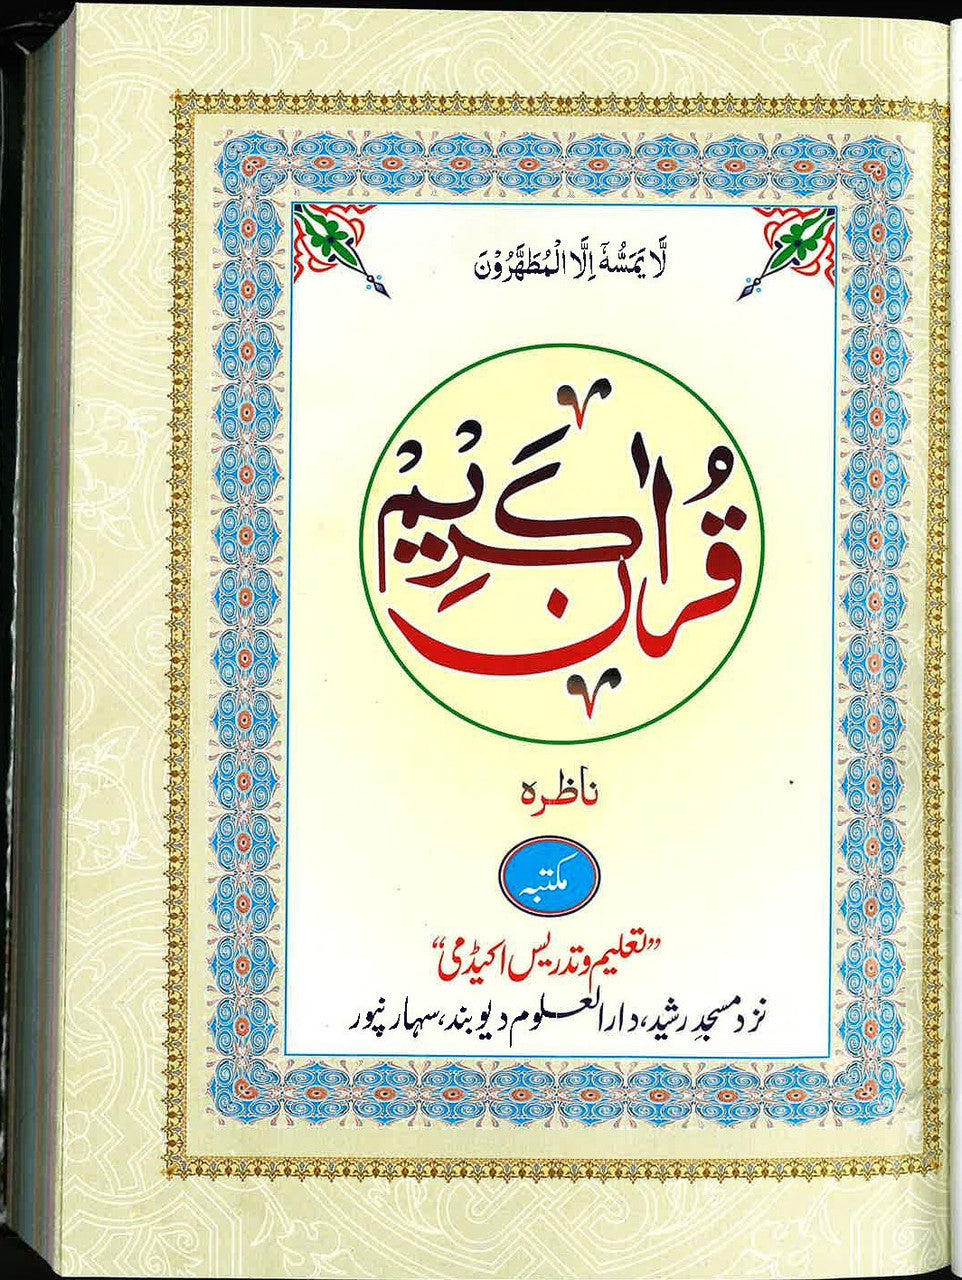 لَّا يَمَسُّهٗۤ اِلَّا الْمُطَهَّرُوْنَ
قُرآن کریم
ناظرہ
مکتبہ
”تعلیم و تدریس اکیڈمی“
نزد مسجدِ رشید، دارالعلوم دیوبند، سہارنپور